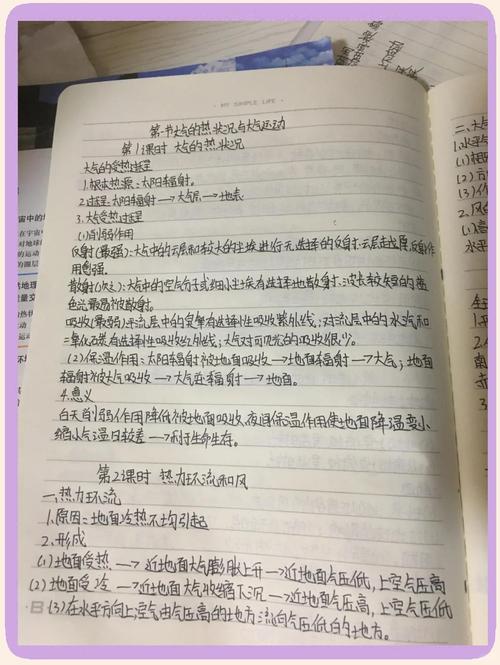 MY SIMPLE LIFE
第一节大气的热状况与大气运动
第1课时 大气的热状况
大气的受热过程
1.根本热源:太阳辐射。
2.过程:太阳辐射→大气层→地表
3.大气受热过程
(1)削弱作用
反射(最强):大气中的云层和较大的尘埃进行无选择的反射.云层越厚,反射作
用愈强.
散射(次之):大气中的空气分子或细小尘埃有选择地散射.波长较短的蓝
色光最易被散射。
吸收(最弱):平流层中的臭氧有选择性吸收紫外线;对流层中的水汽和
二氧化碳有选择性吸收红外线;大气对可见光的吸收很少。
(2)保温作用:太阳辐射被地面吸收→地面辐射→大气;地面
辐射被大气吸收→大气逆辐射→地面。
4.意义
白天削弱作用降低被地面吸收,夜间保温作用使地面降温变小
缩小气温日较差→利于生命生存。
第2课时 热力环流和风
一.热力环流
1.原因:地面冷热不均引起
2.形成
(1)地面受热→近地面大气膨胀上升→近地面气压低,上空气压高
(2)地面受冷→近地面大气收缩下沉→近地面气压高,上空气压低
(3)在水平方向上,空气由气压高的地方流向气压低的地方。